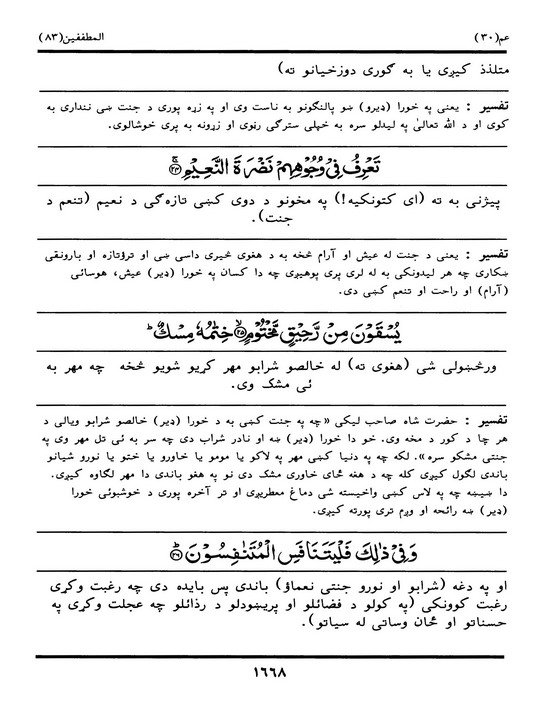 عم(۳۰) المطففين(۸۳)
متلذذ کیږی یا به ګوری دوزخیانو ته)
تفسیر : یعنی په خورا (ډیرو) ښو پالنګونو به ناست وی او په زړه پوری د جنت ښی ننداری به
کوی او د الله تعالیٰ په لیدلو سره به خپلی سترګی رڼوی او زړونه به پری خوشالوی.
تَعْرِفُ فِىْ وُجُوْهِهِمْ نَضْرَةَ النَّعِيْمِ ۝۲۴
پیژنی به ته (ای کتونکیه!) په مخونو د دوی کښی تازه‌گی د نعیم (تنعم د
جنت).
تفسیر : یعنی د جنت له عیش او آرام څخه به د هغوی څیری داسی ښی او تروتازه او بارونقی
ښکاری چه هر لیدونکی به له لری پری پوهیږی چه دا کسان په خورا (ډیر) عیش، هوسائی
(آرام) او راحت او تنعم کښی دی.
يُسْقَوْنَ مِنْ رَّحِيْقٍ مَّخْتُوْمٍ ۝۲۵ خِتٰمُهٗ مِسْكٌ ؕ
ورڅښولی شی (هغوی ته) له خالصو شرابو مهر کړیو شویو څخه چه مهر به
ئی مشک وی.
تفسیر : حضرت شاه صاحب لیکی «چه په جنت کښی به د خورا (ډیر) خالصو شرابو ویالی د
هر چا د کور د مخه وی. خو دا خورا (ډیر) ښه او نادر شراب دی چه سر به ئی تل مهر وی په
جنتی مشکو سره». لکه چه په دنیا کښی مهر په لاکو یا مومو یا خاورو یا ختو یا نورو شیانو
باندی لګول کیږی کله چه د هغه ځای خاوری مشک دی نو په هغو باندی دا مهر لګاوه کیږی.
دا ښیښه چه په لاس کښی واخیسته شی دماغ معطریږی او تر آخره پوری د خوشبوئی خورا
(ډیر) ښه رائحه او وږم تری پورته کیږی.
وَفِىْ ذٰلِكَ فَلْيَتَنَافَسِ الْمُتَنٰفِسُوْنَ ۝۲۶
او په دغه (شرابو او نورو جنتی نعماؤ) باندی پس بایده دی چه رغبت وکړی
رغبت کوونکی (په کولو د فضائلو او پریښودلو د رذائلو چه عجلت وکړی په
حسناتو او ځان وساتی له سیاتو).
۱٦٦٨